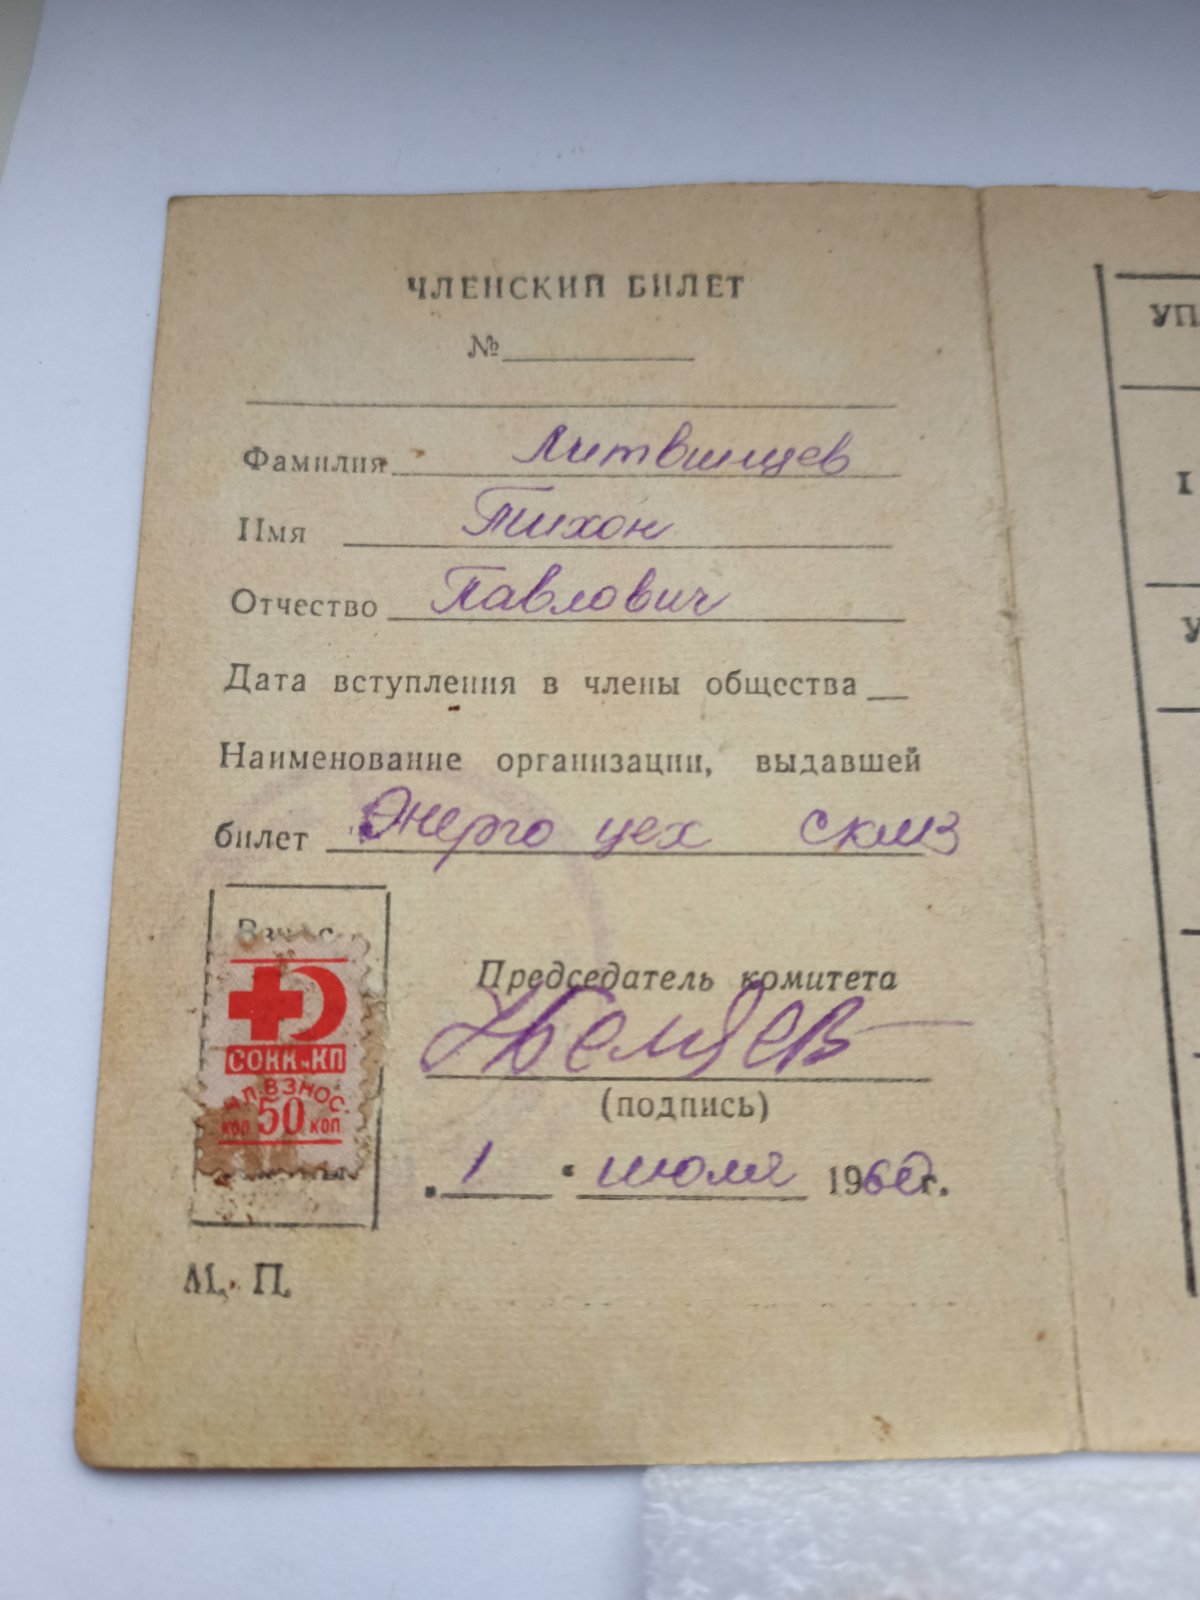 ЧЛЕНСКИЙ БИЛЕТ
№
Фамилия Литвинцев
Имя Тихон
Отчество Павлович
Дата вступления в члены общества
Наименование организации, выдавшей
билет Энерго цех СКМЗ
Взнос
СОКК и КП
ЧЛ. ВЗНОС.
коп 50 коп
Председатель комитета
(подпись)
„1“ июля 1960г.
М. П.
УП
I
У